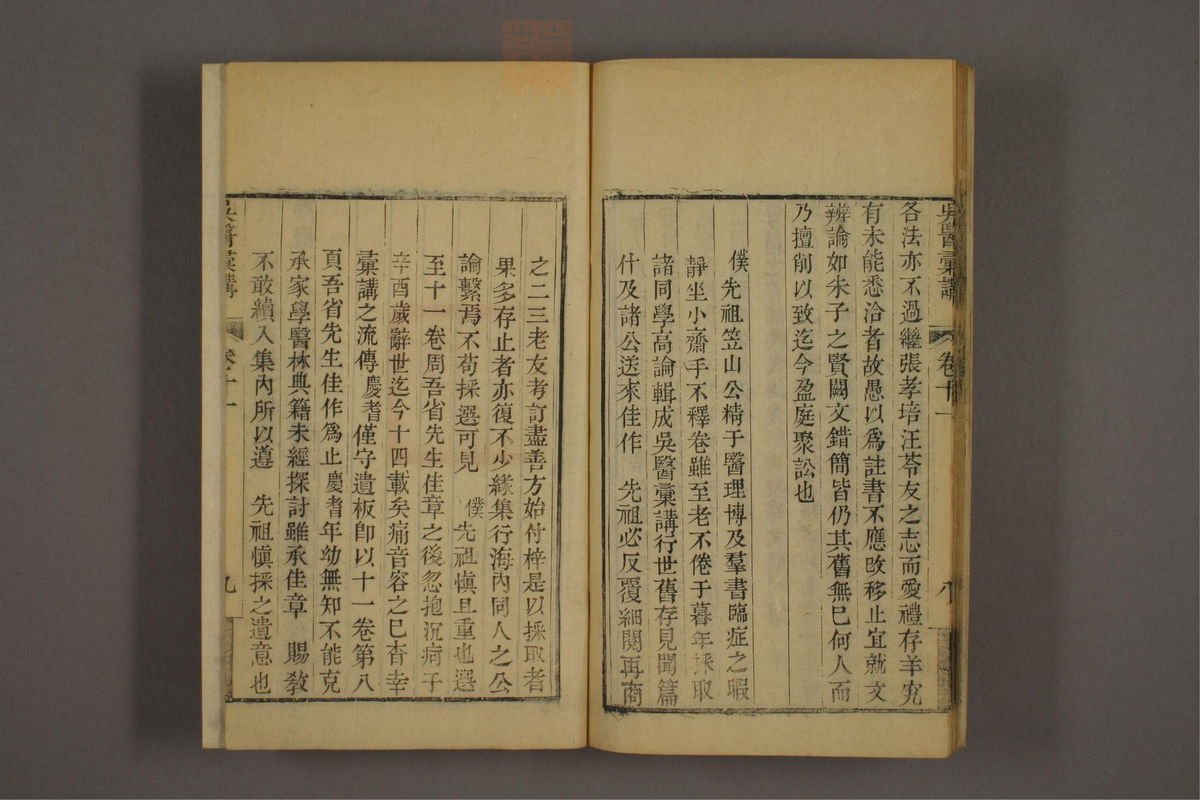 吳醫彙講
卷十一
八
各法亦不過繼張孝培汪苓友之志而愛禮存羊究
有未能悉洽者故愚以為註書不應改移止宜就文
辨論如朱子之賢闕文錯簡皆仍其舊無已何人而
乃擅削以致迄今盈庭聚訟也
僕先祖笠山公精于醫理博及羣書臨症之暇
靜坐小齋手不釋卷雖至老不倦于暮年採取
諸同學高論輯成吳醫彙講行世舊存見聞篇
什及諸公送來佳作 先祖必反覆細閱再商
之二三老友考訂盡善方始付梓是以採取者
果多存止者亦復不少緣集行海內同人之公
論繫焉不苟採選可見 僕先祖愼且重也選
至十一卷周吾省先生佳章之後忽抱沉疴于
辛酉歲辭世迄今十四載矣痛音容之已杳幸
彙講之流傳慶耆僅守遺板卽以十一卷第八
頁吾省先生佳作爲止慶耆年幼無知不能克
承家學醫林典籍未經探討雖承佳章 賜教
不敢續入集內所以遵 先祖愼採之遺意也
吳醫彙講
卷十一
九